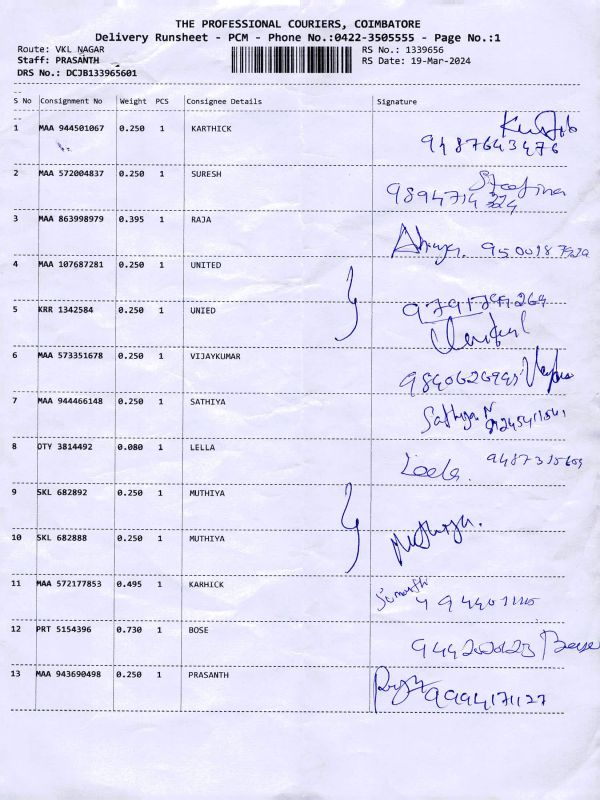 THE PROFESSIONAL COURIERS, COIMBATORE
Delivery Runsheet - PCM - Phone No.:0422-3505555 - Page No.:1
Route: VKL NAGAR RS No.: 1339656
Staff: PRASANTH RS Date: 19-Mar-2024
DRS No.: DCJB133965601
S No Consignment No Weight PCS Consignee Details Signature
1 MAA 944501067 0.250 1 KARTHICK
9487643476
2 MAA 572004837 0.250 1 SURESH
9894714324
3 MAA 863998979 0.395 1 RAJA
4 MAA 107687281 0.250 1 UNITED
5 KRR 1342584 0.250 1 UNIED
6 MAA 573351678 0.250 1 VIJAYKUMAR
7 MAA 944466148 0.250 1 SATHIYA Sathiya N
8 OTY 3814492 0.080 1 LELLA Leela
9 SKL 682892 0.250 1 MUTHIYA
10 SKL 682888 0.250 1 MUTHIYA Muthiya.
11 MAA 572177853 0.495 1 KARHICK
12 PRT 5154396 0.730 1 BOSE Bose
13 MAA 943690498 0.250 1 PRASANTH 9994171127